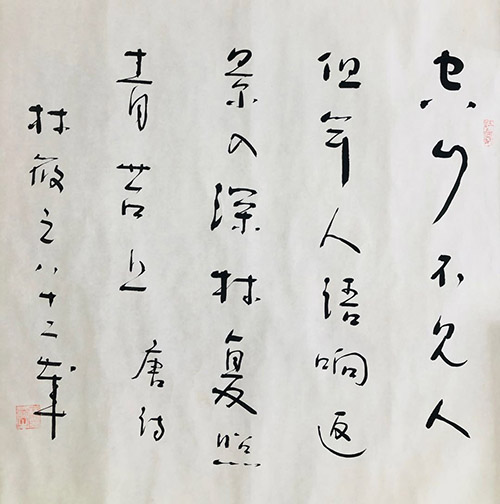 空山不见人
但闻人语响返
景入深林复照
青苔上 唐诗
林筱之八十二岁